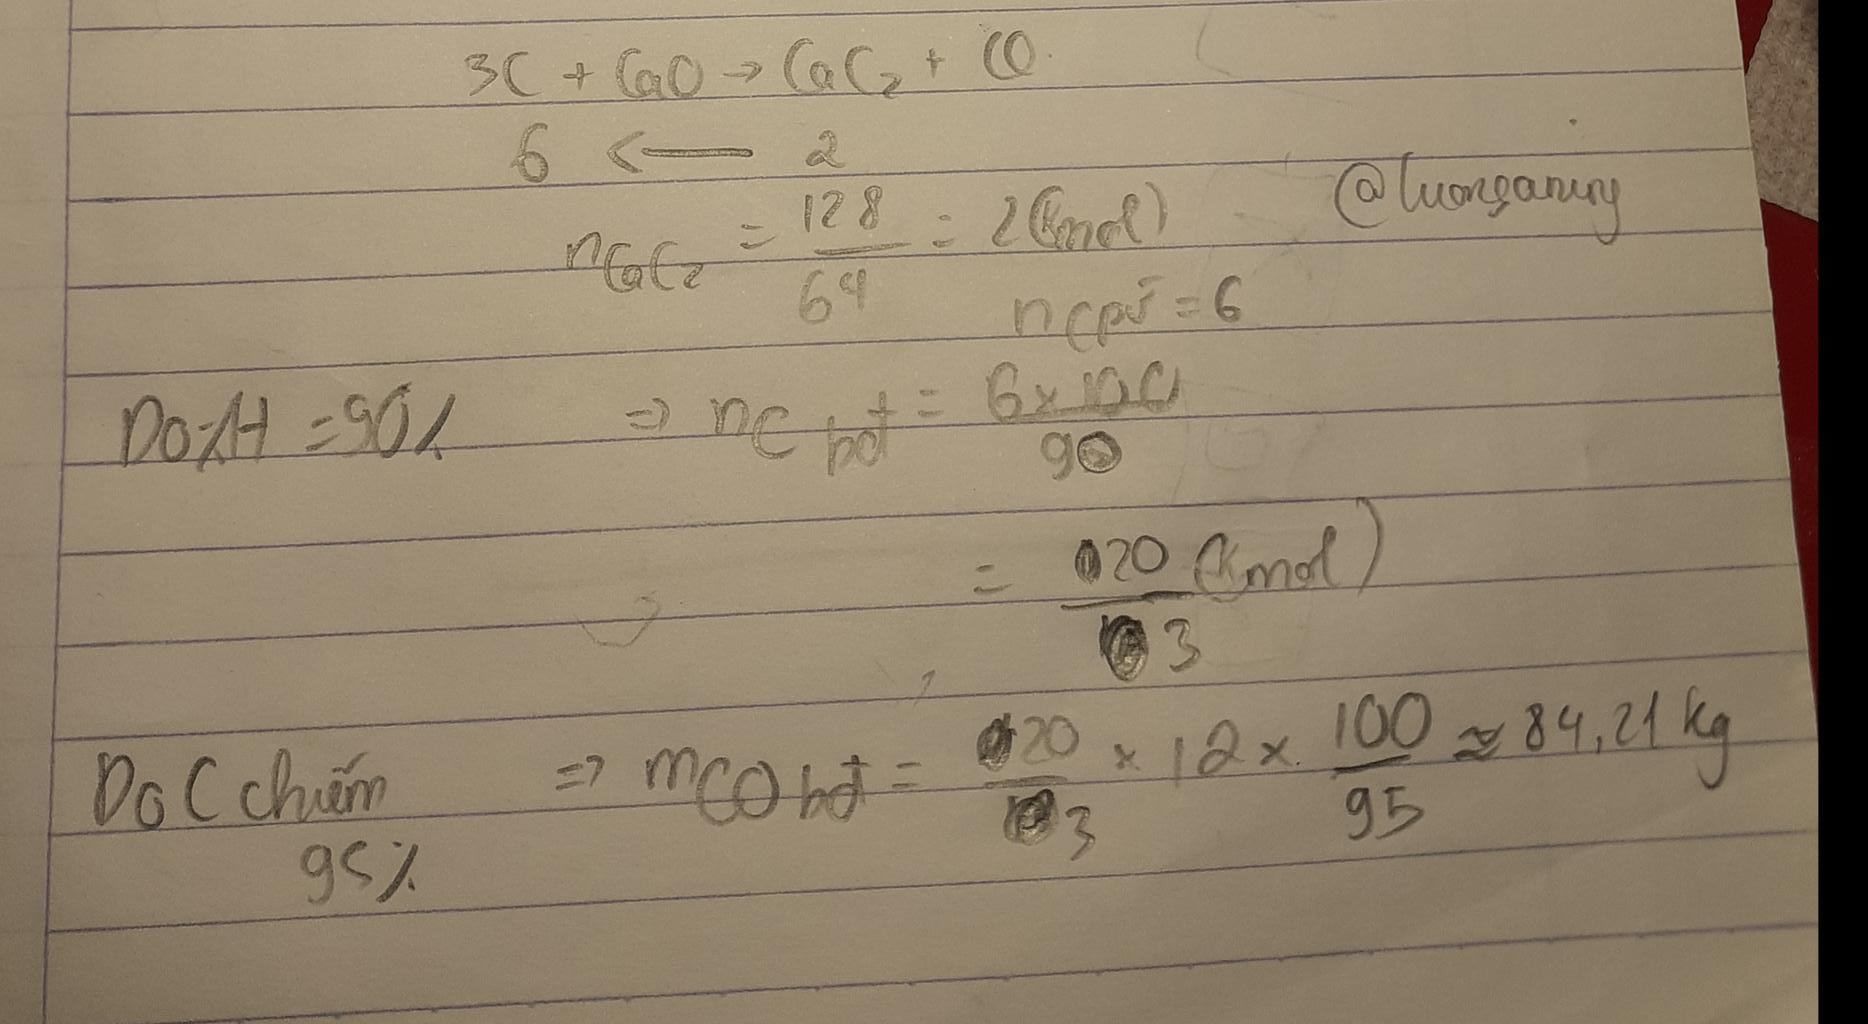 3C + CaO → CaC₂ + CO
6 ← 2
nCaC₂ = 128/64 = 2 (kmol)
@luonganny
nCpứ = 6
Do %H = 90% ⇒ nC bđ = 6 x 100/90
= 20/3 (kmol)
Do C chiếm 95% ⇒ mCO bđ = 20/3 x 12 x 100/95 ≈ 84,21 kg